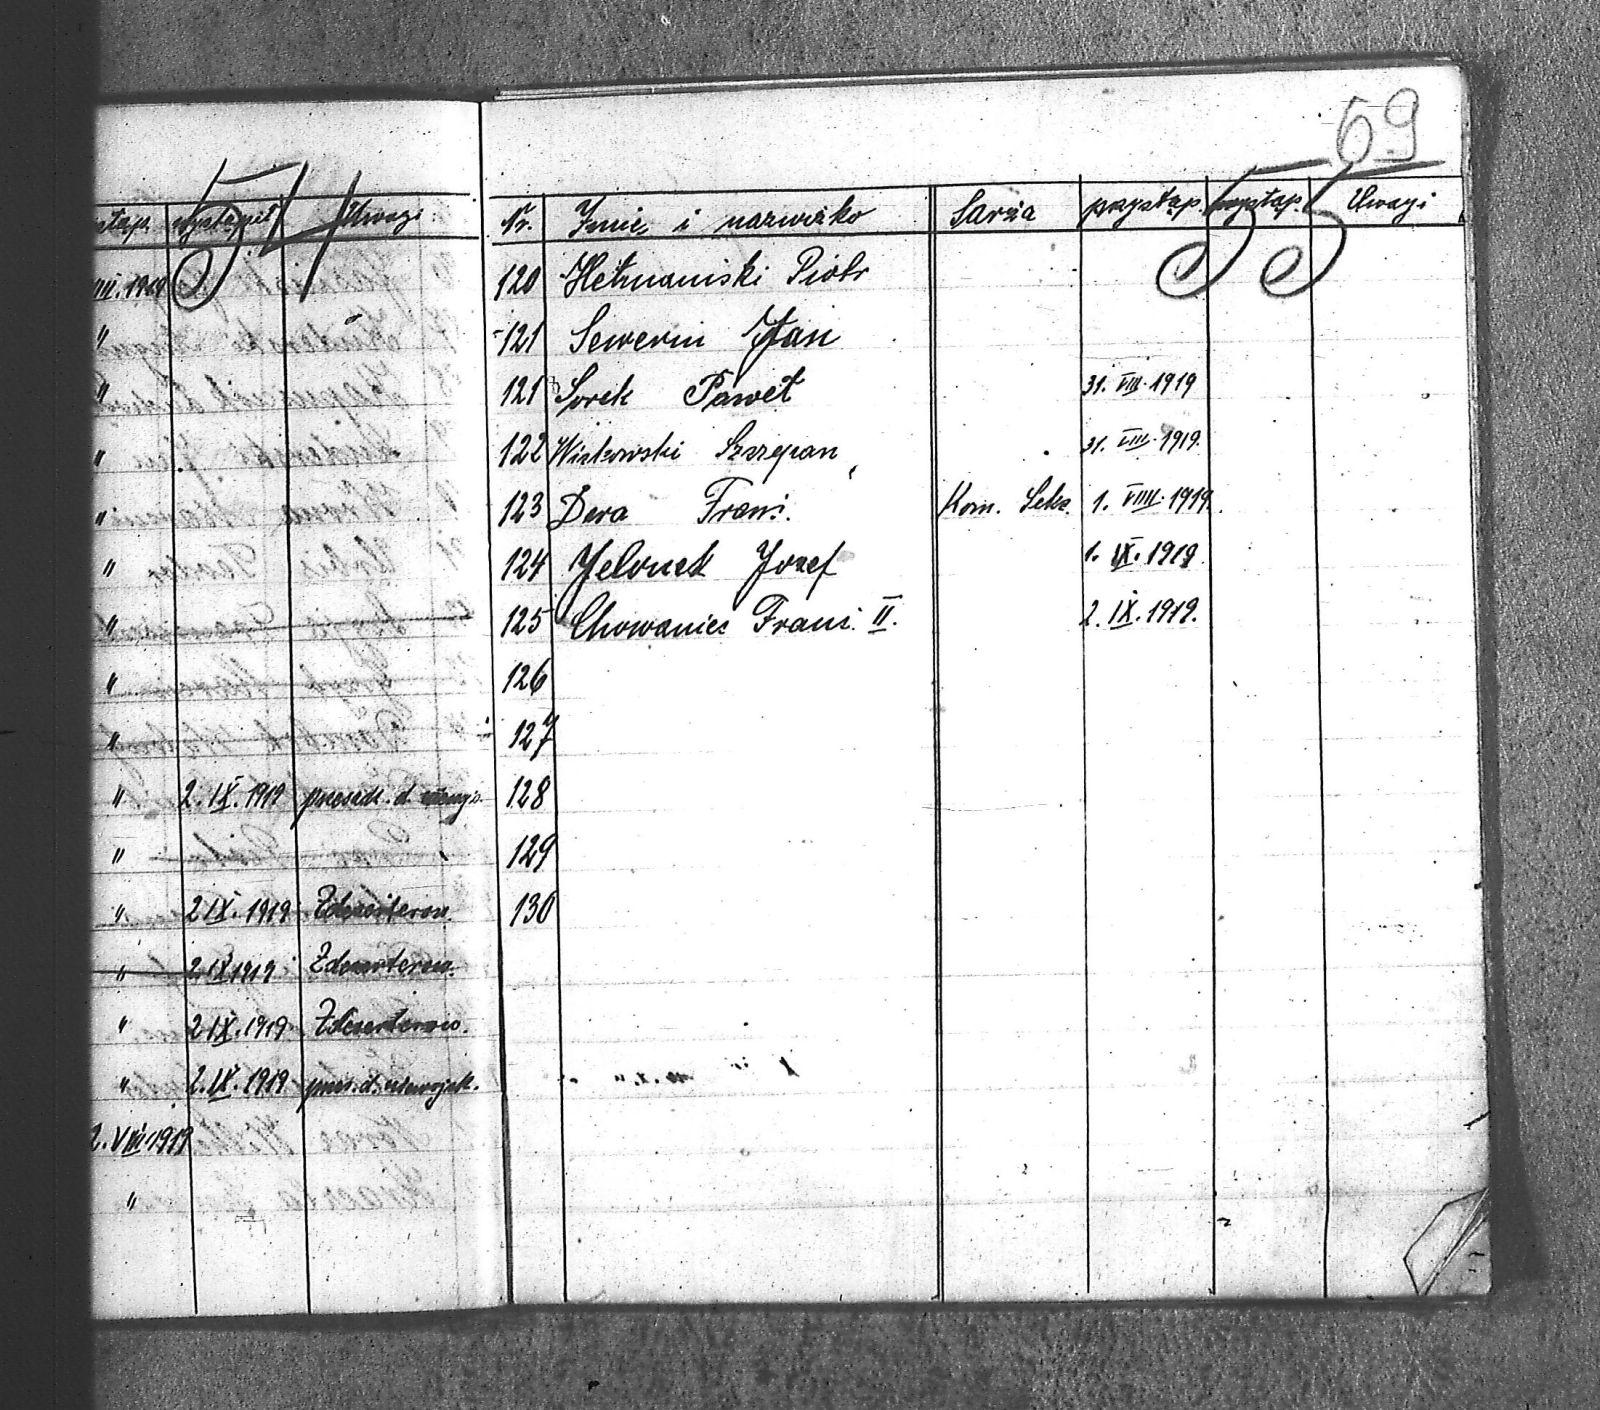 54
ystąp. wystąpił Uwagi
VIII. 1919
"
"
"
"
"
"
"
"
" 2. IX. 1919 przeszdł. d.
"
" 2 IX. 1919 Zdezerterow.
" 2 IX 1919 Zdezerterow.
" 2 IX. 1919 Zdezerterow.
" 2. IX. 1919 przes. d.
2. VIII 1919
"
69
55
Nr. Imię i nazwisko Sarża przystąp. wystąp. Uwagi
120 Hetmaniski Piotr
121 Sewerin Jan
121 Sorek Paweł 31. VIII. 1919
122 Wickowski Szczepan 31. VIII. 1919.
123 Dera Franc. Kom. Sekc. 1. VIIII. 1919.
124 Jelonek Jozef 1. IX. 1919
125 Chowaniec Franc. II. 2. IX. 1919.
126
127
128
129
130